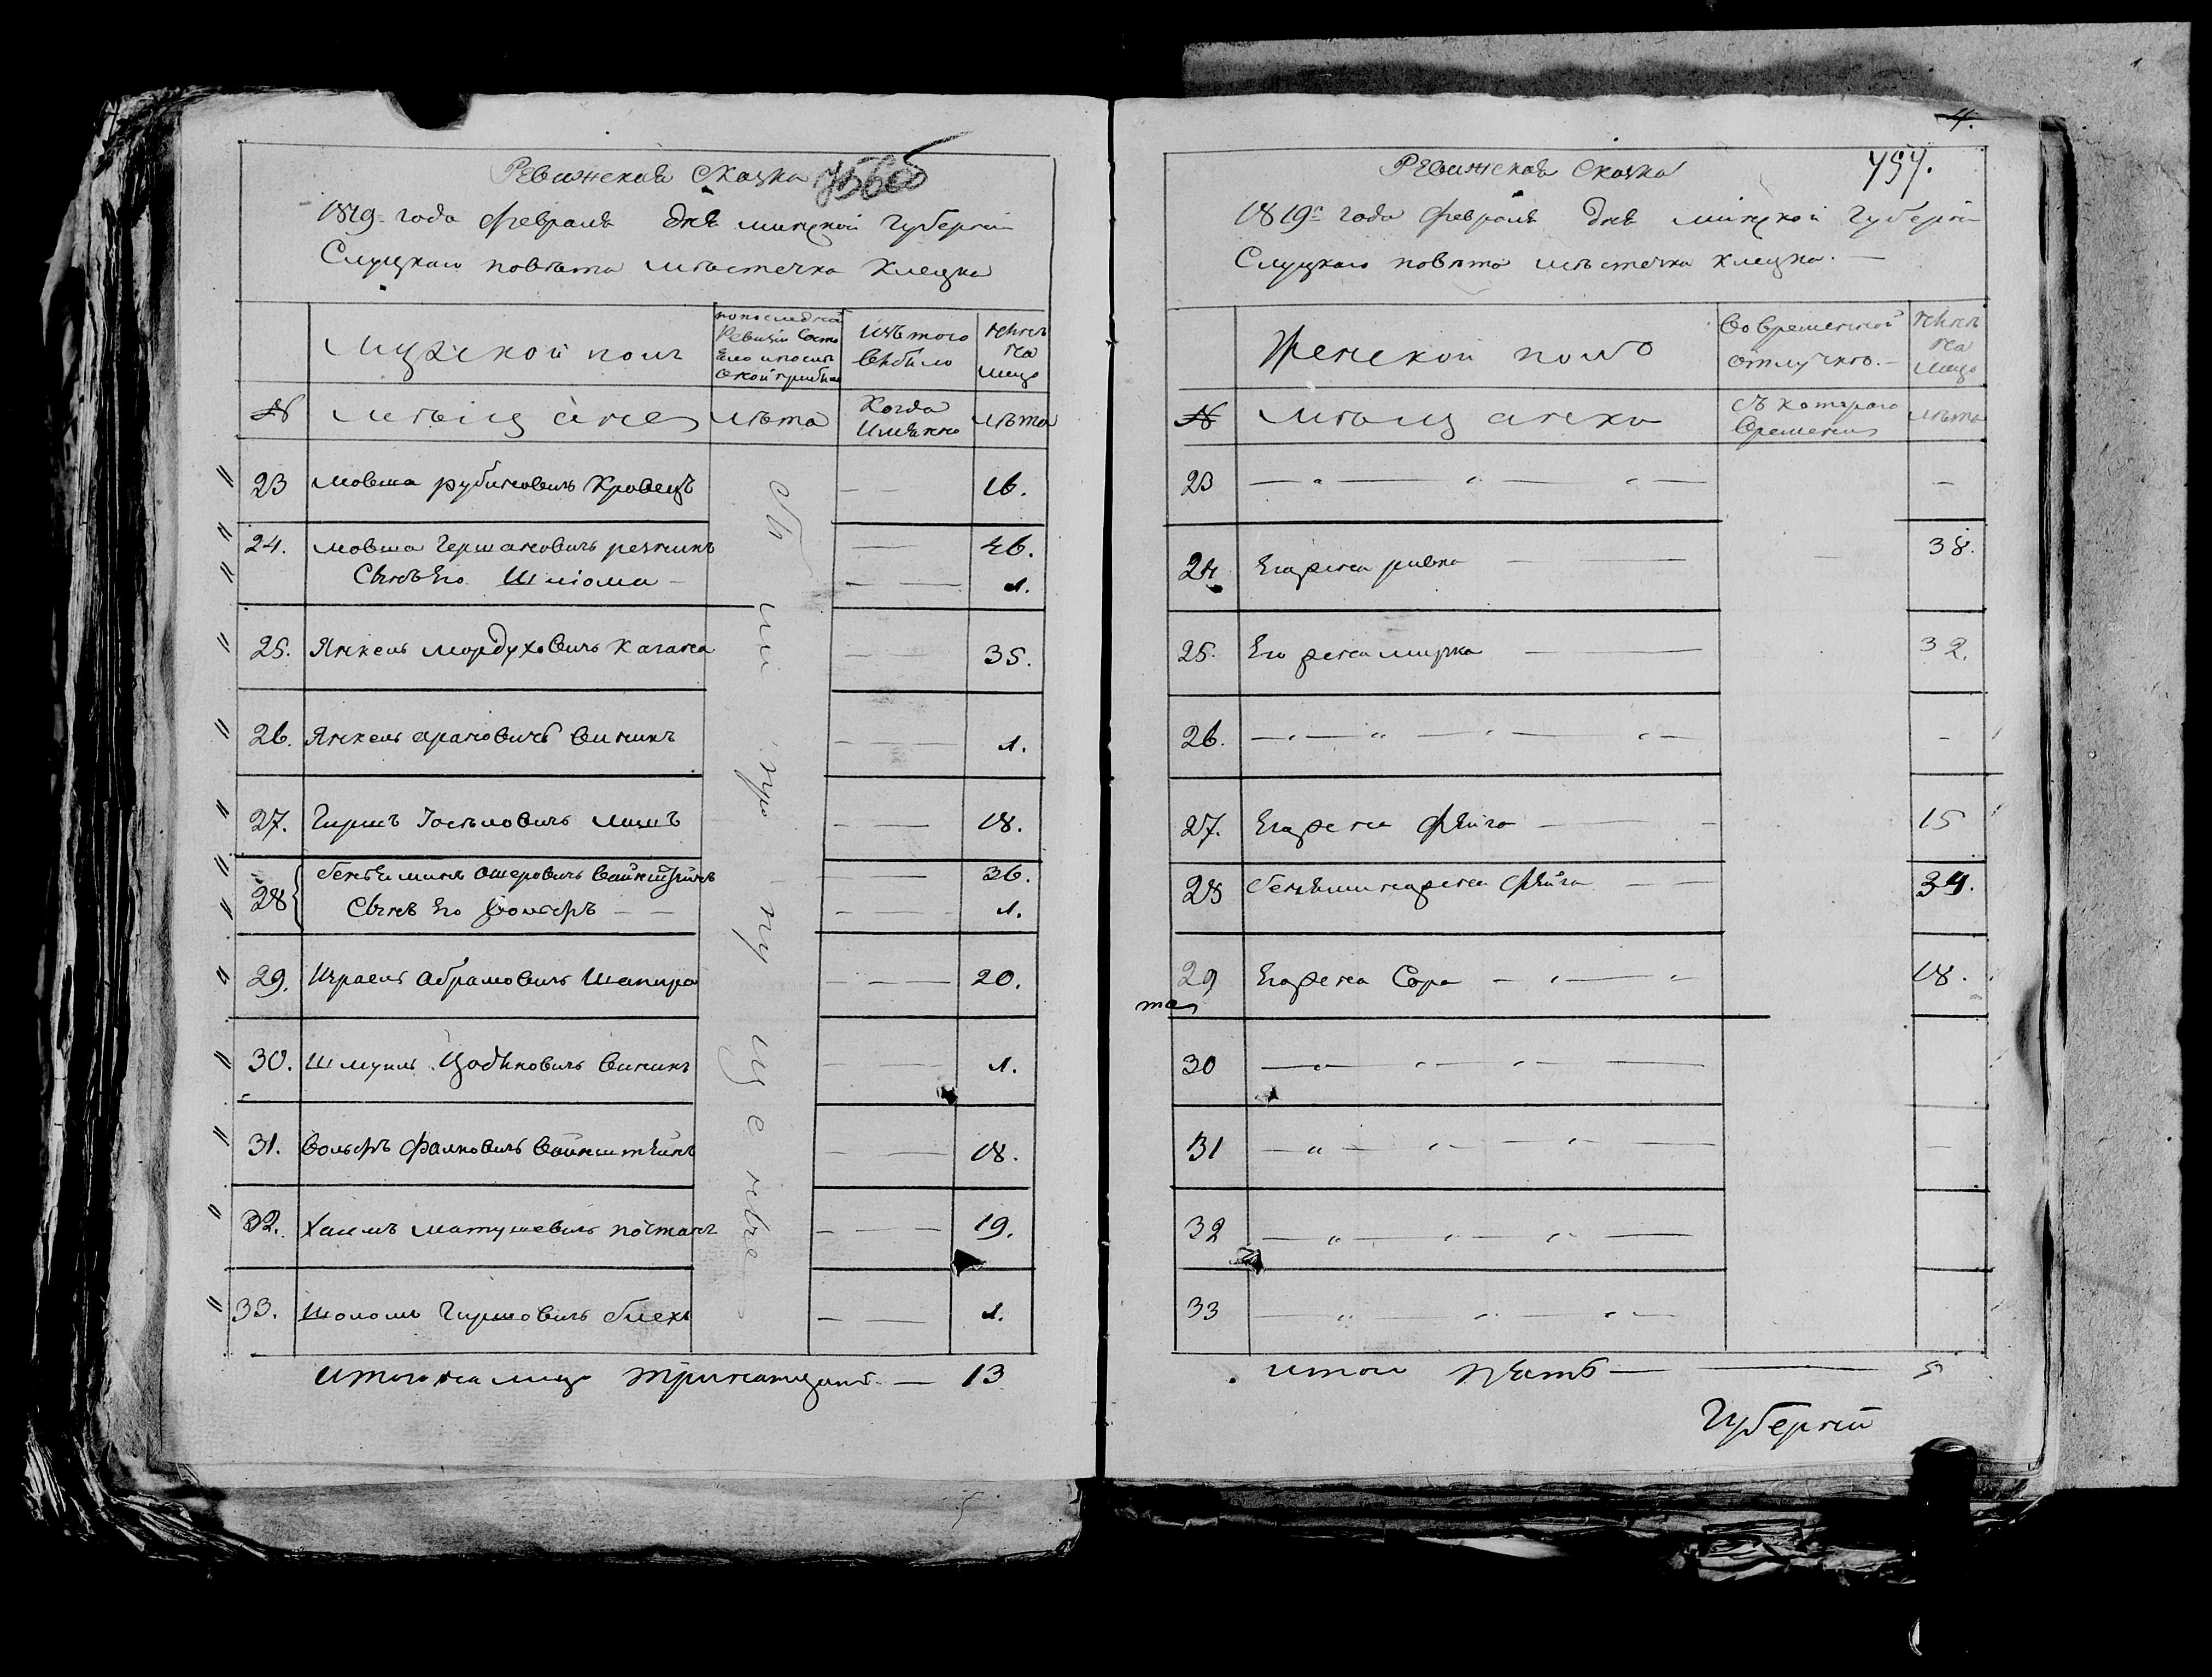 Ревижская Сказка 756об
1819 года Февраля дня минской Губернии
Слуцкаго повѣта мѣстечка Клецка
Мужской полъ
по последней Ревизіи Состо
Изъ того выбыло
нынѣ на лицо
№ мѣщане лѣта Когда Имянно лѣта
23 мовша рубиновичъ Кровецъ — — 16.
24. мовша Гершановичъ резникъ — 46.
Сынъ Его Шліома — — 1.
25. Янкель мордуховичъ Кагана — — 35.
26. Янкель ароновичъ Виникъ — — 1.
27. Гиршъ Іоселовичъ — — 18.
28 беньеминъ Ошеровичъ Вайнштейнъ — 36.
Сынъ Его Вольфъ — — 1.
29. Израель абрамовичъ Шапира — — — 20.
30. Шмуиль Цодиковичъ Виникъ — — 1.
31. Вольфъ Фалковичъ Вайнштейнъ — — 18.
32. Хаимъ матушевичъ — — 19.
33. Шоломъ Гиршовичъ блехъ — — 1.
пропущенные
итого на лицо тринатцать — 13
4.
757.
Ревижская Сказка
1819г года Февраля дня минской Губерніи
Слуцкаго повѣта мѣстечка Клецка. —
Женской полъ
Во временной отлучкѣ. —
нынѣ на лицо
№ мѣщанки съ котораго Времени лѣта
23 — " — " — " — —
24 Егожена ривка — — 38.
25. Его жена мирка — — 32.
26. — " — " — " — " — —
27. Егожена Фейга — — 15
28 беньеминажена Фейга — — 34.
29 Егожена Сора — " — " 18.
та
30 — " — " — " — —
31 — " — " — " — —
32 — " — " — " —
33 — " — " — " —
итого пять — — 5
Губерній